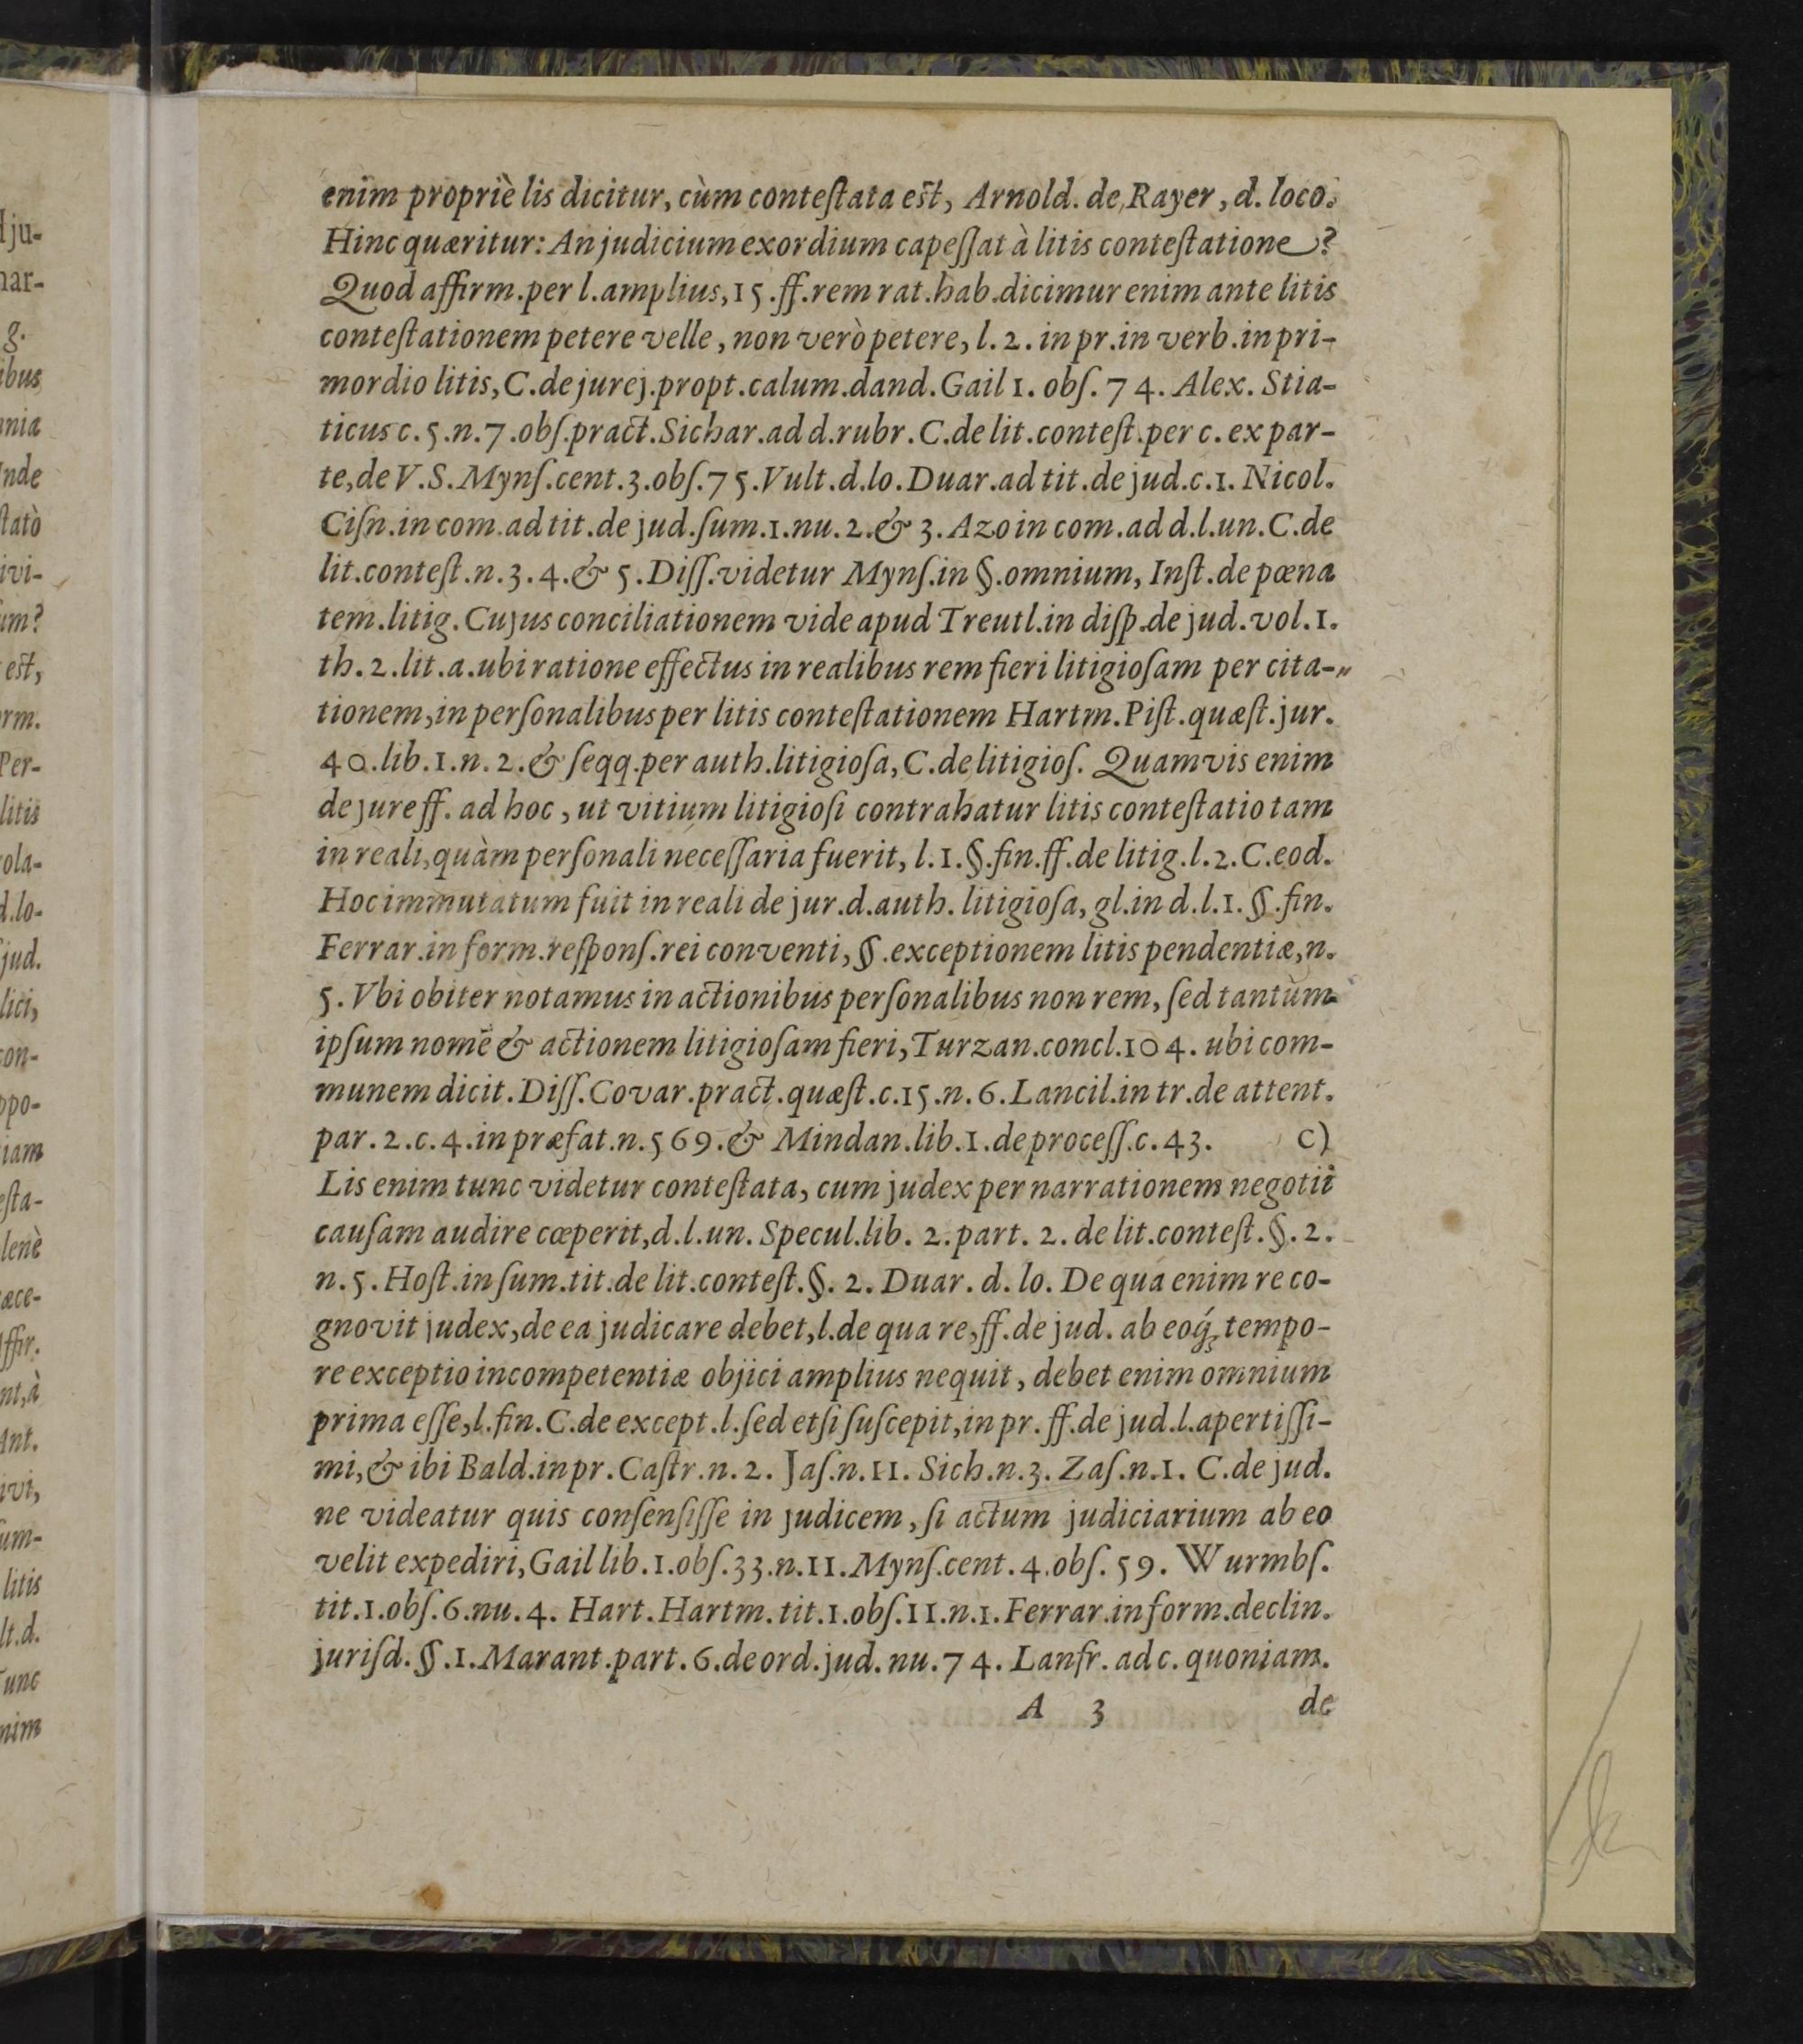 enim propriè lis dicitur, cùm conteſtata eſt, Arnold. de Rayer, d. loco.
Hinc quæritur: An judicium exordium capeſſat à litis conteſtatione?
Quod affirm. per l. amplius, 15. ff. rem rat. hab. dicimur enim ante litis
conteſtationem petere velle, non verò petere, l. 2. in pr. in verb. in pri-
mordio litis, C. de jurej. propt. calum. dand. Gail 1. obſ. 74. Alex. Stia-
ticus c. 5. n. 7. obſ. pract. Sichar. ad d. rubr. C. de lit. conteſt. per c. ex par-
te, de V. S. Mynſ. cent. 3. obſ. 75. Vult. d. lo. Duar. ad tit. de jud. c. 1. Nicol.
Ciſn. in com. ad tit. de jud. ſum. 1. nu. 2. & 3. Azo in com. ad d. l. un. C. de
lit. conteſt. n. 3. 4. & 5. Diſſ. videtur Mynſ. in §. omnium, Inſt. de pœna
tem. litig. Cujus conciliationem vide apud Treutl. in diſp. de jud. vol. 1.
th. 2. lit. a. ubi ratione effectus in realibus rem fieri litigioſam per cita-„
tionem, in perſonalibus per litis conteſtationem Hartm. Piſt. quæſt. jur.
40. lib. 1. n. 2. & ſeqq. per auth. litigioſa, C. de litigioſ. Quamvis enim
de jure ff. ad hoc, ut vitium litigioſi contrahatur litis conteſtatio tam
in reali, quàm perſonali neceſſaria fuerit, l. 1. §. fin. ff. de litig. l. 2. C. eod.
Hoc immutatum fuit in reali de jur. d. auth. litigioſa, gl. in d. l. 1. §. fin.
Ferrar. in form. reſponſ. rei conventi, §. exceptionem litis pendentiæ, n.
5. Vbi obiter notamus in actionibus perſonalibus non rem, ſed tantùm
ipſum nomē & actionem litigioſam fieri, Turzan. concl. 104. ubi com-
munem dicit. Diſſ. Covar. pract. quæſt. c. 15. n. 6. Lancil. in tr. de attent.
par. 2. c. 4. in præfat. n. 569. & Mindan. lib. 1. de proceſſ. c. 43. C)
Lis enim tunc videtur conteſtata, cum judex per narrationem negotii
cauſam audire cœperit, d. l. un. Specul. lib. 2. part. 2. de lit. conteſt. §. 2.
n. 5. Hoſt. in ſum. tit. de lit. conteſt. §. 2. Duar. d. lo. De qua enim re co-
gnovit judex, de ea judicare debet, l. de qua re, ff. de jud. ab eoq́; tempo-
re exceptio incompetentiæ objici amplius nequit, debet enim omnium
prima eſſe, l. fin. C. de except. l. ſed etſi ſuſcepit, in pr. ff. de jud. l. apertiſſi-
mi, & ibi Bald. in pr. Caſtr. n. 2. Jaſ. n. 11. Sich. n. 3. Zaſ. n. 1. C. de jud.
ne videatur quis conſenſiſſe in judicem, ſi actum judiciarium ab eo
velit expediri, Gail lib. 1. obſ. 33. n. 11. Mynſ. cent. 4. obſ. 59. Wurmbſ.
tit. 1. obſ. 6. nu. 4. Hart. Hartm. tit. 1. obſ. 11. n. 1. Ferrar. in form. declin.
juriſd. §. 1. Marant. part. 6. de ord. jud. nu. 74. Lanfr. ad c. quoniam.
A 3 de